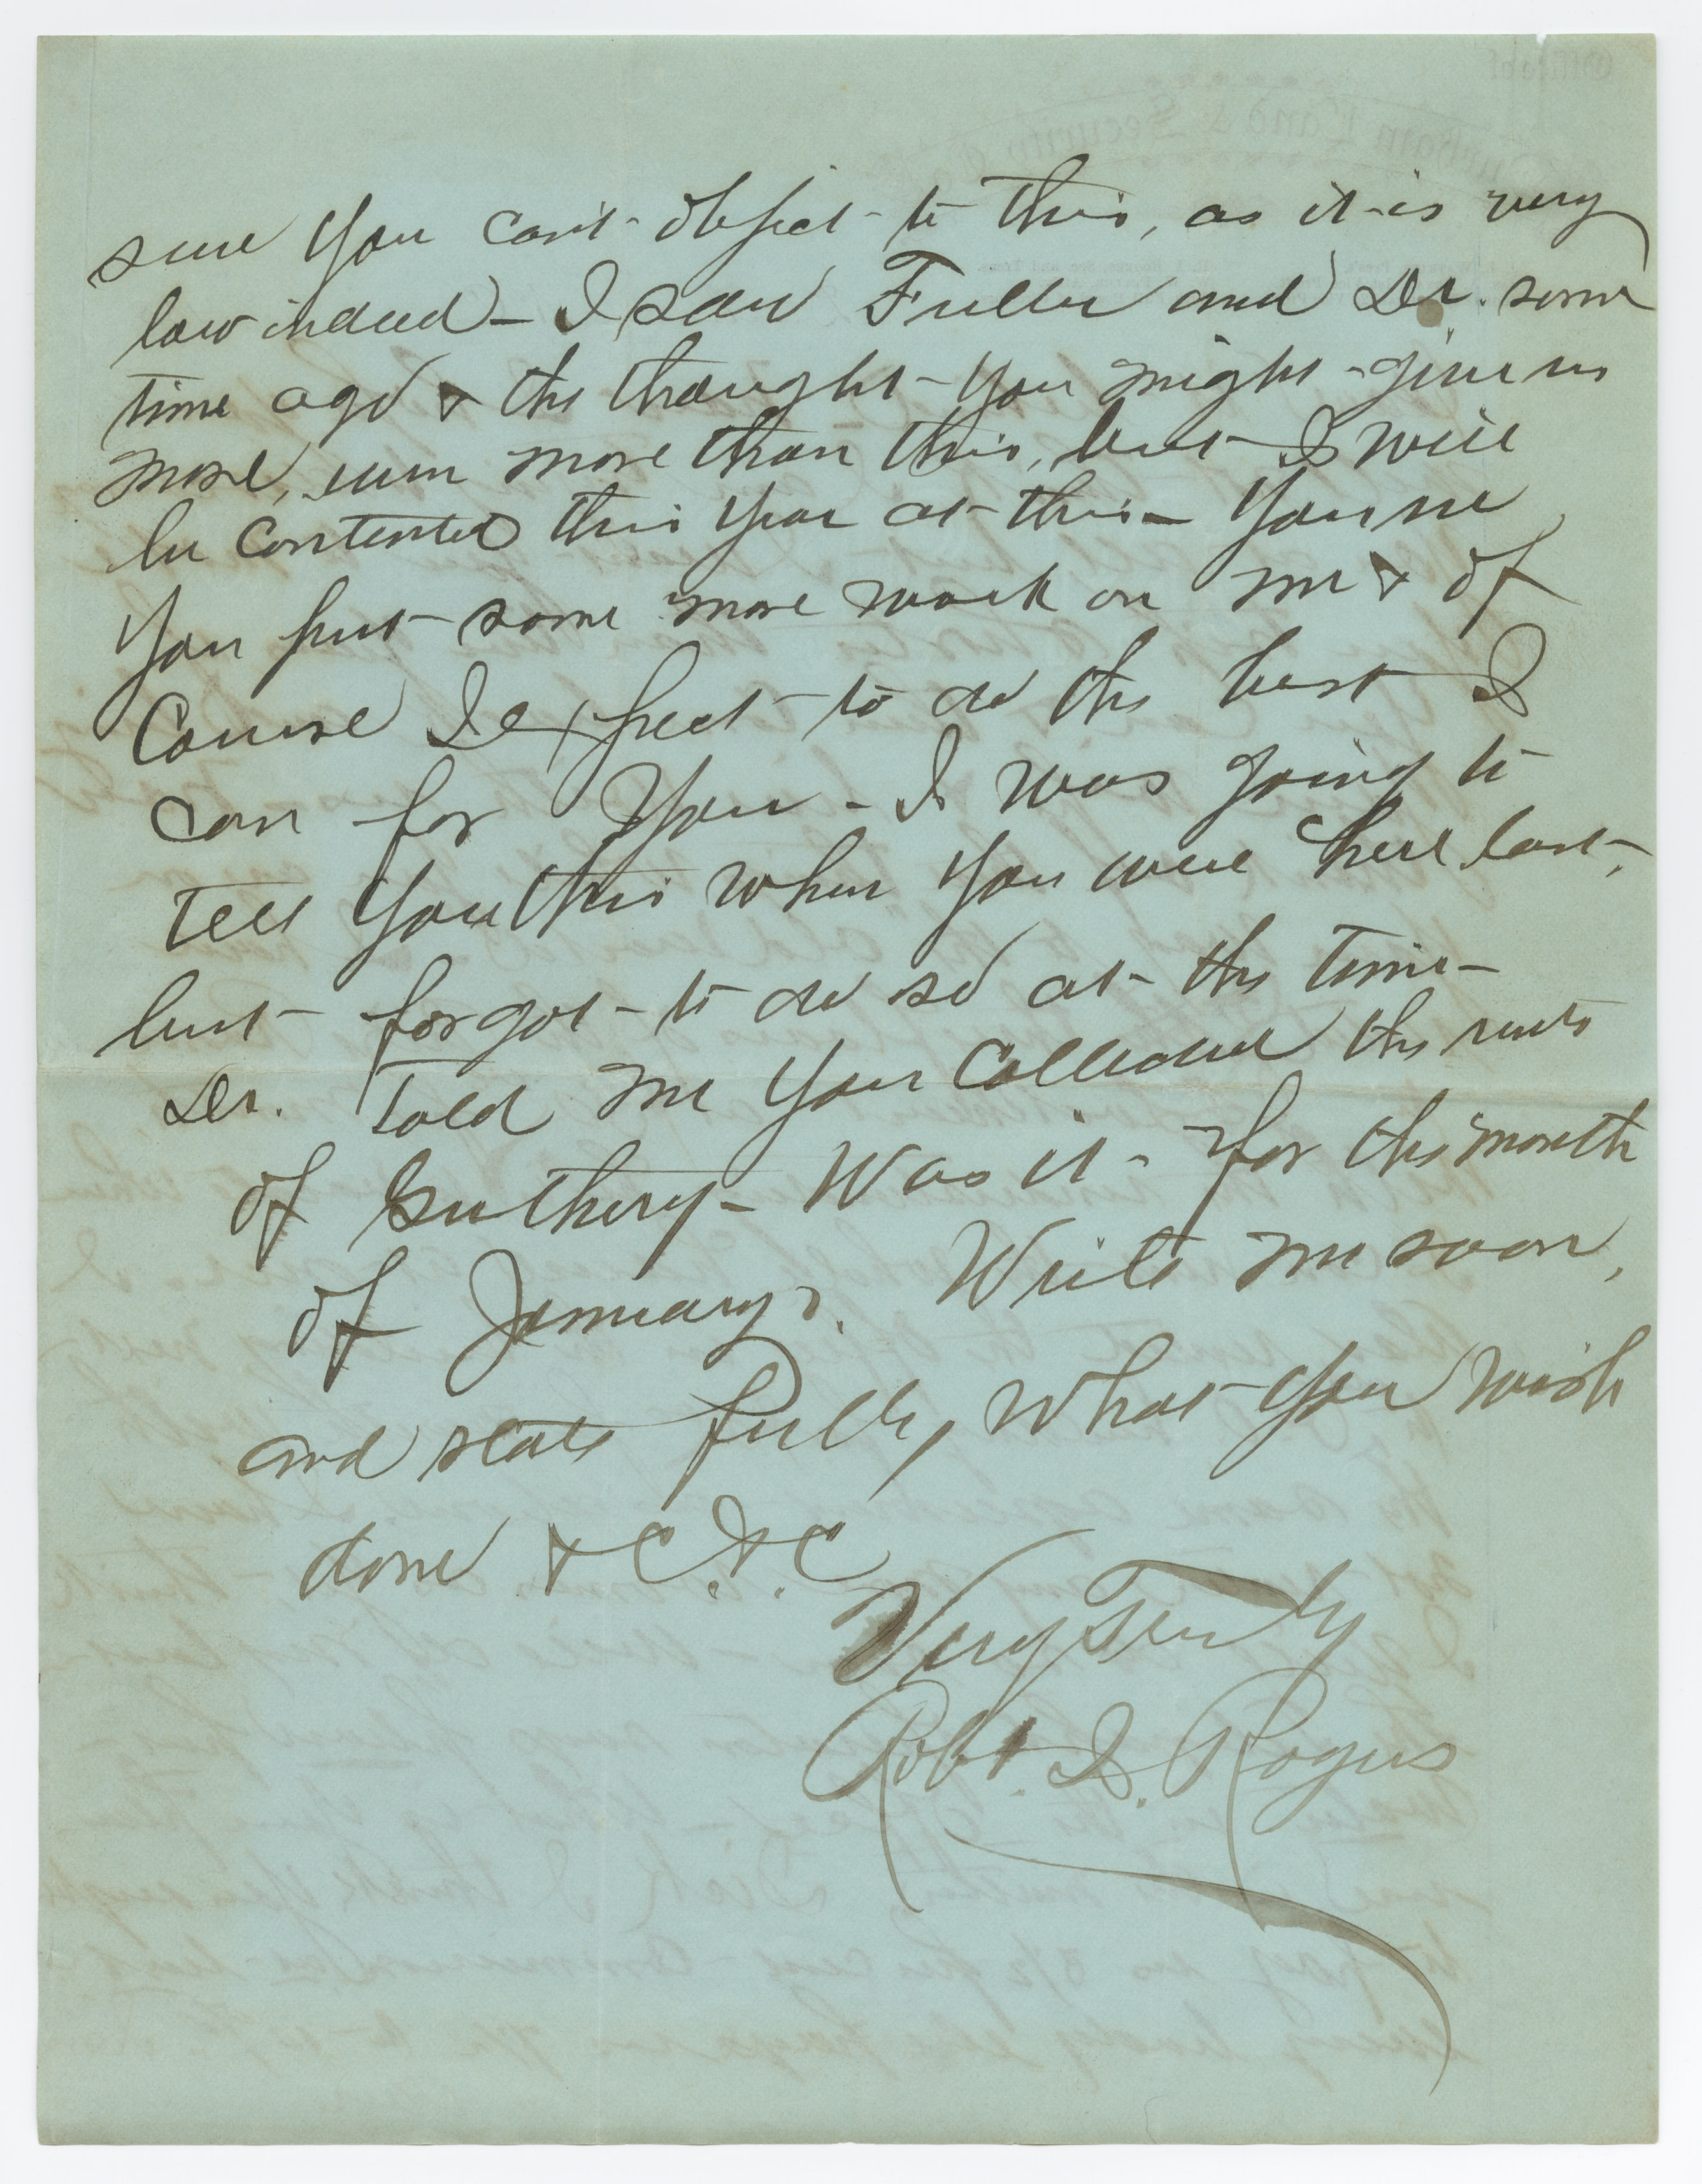 sure you can't object to this, as it is very
low indeed - I saw Fuller and Dr. some
time ago & the thought you might give us
more, even more than this, but I will
be contented this year at this - You see
you put some more work on me & of
Course I expect to do the best I
can for you - I was going to
tell you this when you were here last,
but forgot to do so at the time -
Dr. told me you Collected the rents
of Guthery - Was it for the month
of January? Write me soon,
and state fully, what you wish
done & C. & C
Very Truly
Robt. I. Rogers